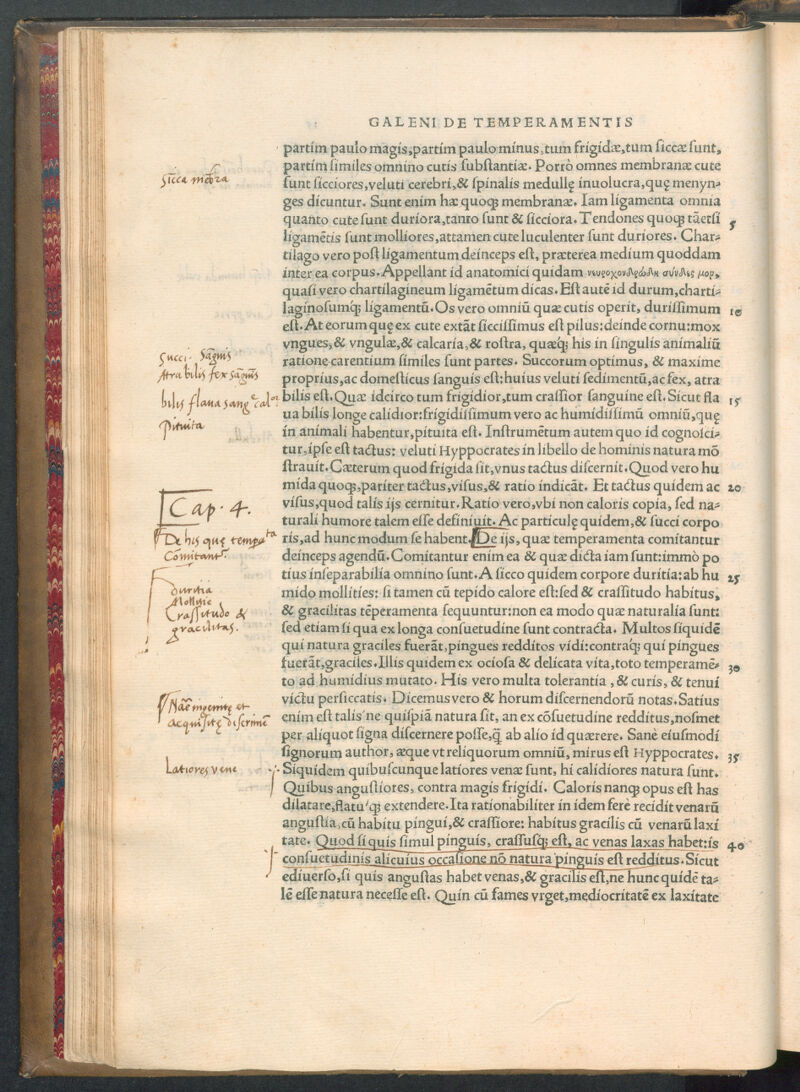 GALENI DE TEMPERAMENTIS
partim paulo magis,partim paulo minus,tum frigidæ,tum ſiccæ ſunt,
partim ſimiles omnino cutis ſubſtantiæ. Porrò omnes membranæ cute
ſunt ſicciores,veluti cerebri,& ſpinalis medullę inuolucra,quę menyn-
ges dicuntur. Sunt enim hæ quoq; membranæ. Iam ligamenta omnia
quanto cute ſunt duriora,tanto ſunt & ſicciora. Tendones quoq; tāetſi
ligamētis ſunt molliores,attamen cute luculenter ſunt duriores. Char-
tilago vero poſt ligamentum deinceps eſt, præterea medium quoddam
inter ea corpus.Appellant id anatomici quidam
quaſi vero chartilagineum ligamētum dicas. Eſt autē id durum,charti-
laginoſumq; ligamentū.Os vero omniū quæ cutis operit, duriſſimum
eſt.At eorum quę ex cute extāt ſicciſſimus eſt pilus:deinde cornu:mox
vngues,& vngulæ,& calcaria,& roſtra, quæq; his in ſingulis animaliū
ratione carentium ſimiles ſunt partes. Succorum optimus, & maxime
proprius,ac domeſticus ſanguis eſt:huius veluti ſedimentū,ac fex, atra
bilis eſt.Quæ idcirco tum frigidior,tum craſſior ſanguine eſt.Sicut fla
ua bilis longe calidior:frigidiſſimum vero ac humidiſſimū omniū,quę
in animali habentur,pituita eſt. Inſtrumētum autem quo id cognoſci-
tur,ipſe eſt tactus: veluti Hyppocrates in libello de hominis natura mō
ſtrauit.Cæterum quod frigida ſit,vnus tactus diſcernit.Quod vero hu
mida quoq;,pariter tactus,viſus,& ratio indicāt. Et tactus quidem ac
viſus,quod talis ijs cernitur.Ratio vero,vbi non caloris copia, ſed na-
turali humore talem eſſe definiuit. Ac particulę quidem,& ſucci corpo
ris,ad hunc modum ſe habent.De ijs,quæ temperamenta comitantur
deinceps agendū.Comitantur enim ea & quæ dicta iam ſunt:immò po
tius inſeparabilia omnino ſunt.A ſicco quidem corpore duritia:ab hu
mido mollities: ſi tamen cū tepido calore eſt:ſed & craſſitudo habitus,
& gracilitas tēperamenta ſequuntur:non ea modo quæ naturalia ſunt:
ſed etiam ſi qua ex longa conſuetudine ſunt contracta. Multos ſiquidē
qui natura graciles fuerāt,pingues redditos vidi:contraq; qui pingues
fuerāt,graciles.Illis quidem ex ocioſa & delicata vita,toto temperamē-
to ad humidius mutato. His vero multa tolerantia ,& curis, & tenui
victu perſiccatis. Dicemus vero & horum diſcernendorū notas.Satius
enim eſt talis ne quiſpiā natura ſit, an ex cōſuetudine redditus,noſmet
per aliquot ſigna diſcernere poſſe,q̄ ab alio id quærere. Sanè eiuſmodi
ſignorum author, æque vt reliquorum omniū, mirus eſt Hyppocrates.
Siquidem quibuſcunque latiores venæ ſunt, hi calidiores natura ſunt.
Quibus anguſtiores, contra magis frigidi. Caloris nanq; opus eſt has
dilatare,flatu'q; extendere.Ita rationabiliter in idem ferè recidit venarū
anguſtia,cū habitu pingui,& craſſiore: habitus gracilis cū venarū laxi
tate. Quod ſi quis ſimul pinguis, craſſuſq; eſt, ac venas laxas habet:is
conſuetudinis alicuius occaſione nō natura pinguis eſt redditus.Sicut
ediuerſo,ſi quis anguſtas habet venas,& gracilis eſt,ne hunc quidē ta-
lē eſſe natura neceſſe eſt. Quin cū fames vrget,mediocritatē ex laxitate
5
10
15
20
25
30
35
40
Sicca mēbra
Succi. Sāguis
Atra bilis fex sāguis
bilis flaua sang
Pituita
Cap. 4.
De his quę tempᵃᵗᵃ
Comitant
Duritia
Mollicie
Crassitudo &
gracilitas.
Latiores vene